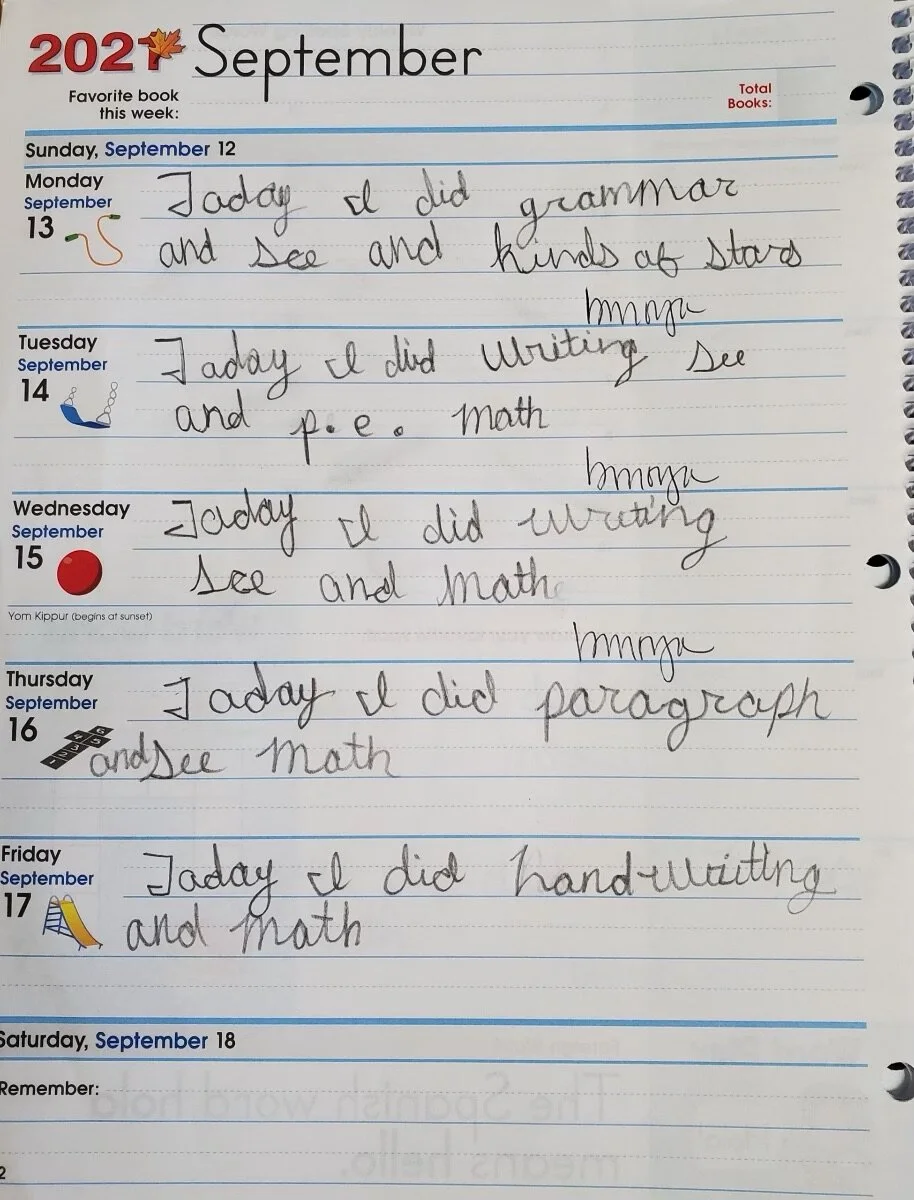 2021 September
Favorite book
this week:
Total
Books:
Sunday, September 12
Monday
September
13
Taday I did grammar
and see and kinds of stars
bmoya
Tuesday
September
14
Taday I did writing see
and p.e. math
bmoya
Wednesday
September
15
Taday I did writing
see and math
Yom Kippur (begins at sunset)
bmoya
Thursday
September
16
Taday I did paragraph
and see math
Friday
September
17
Taday I did handwriting
and math
Saturday, September 18
Remember:
2
The Spanish word hola
means hello.